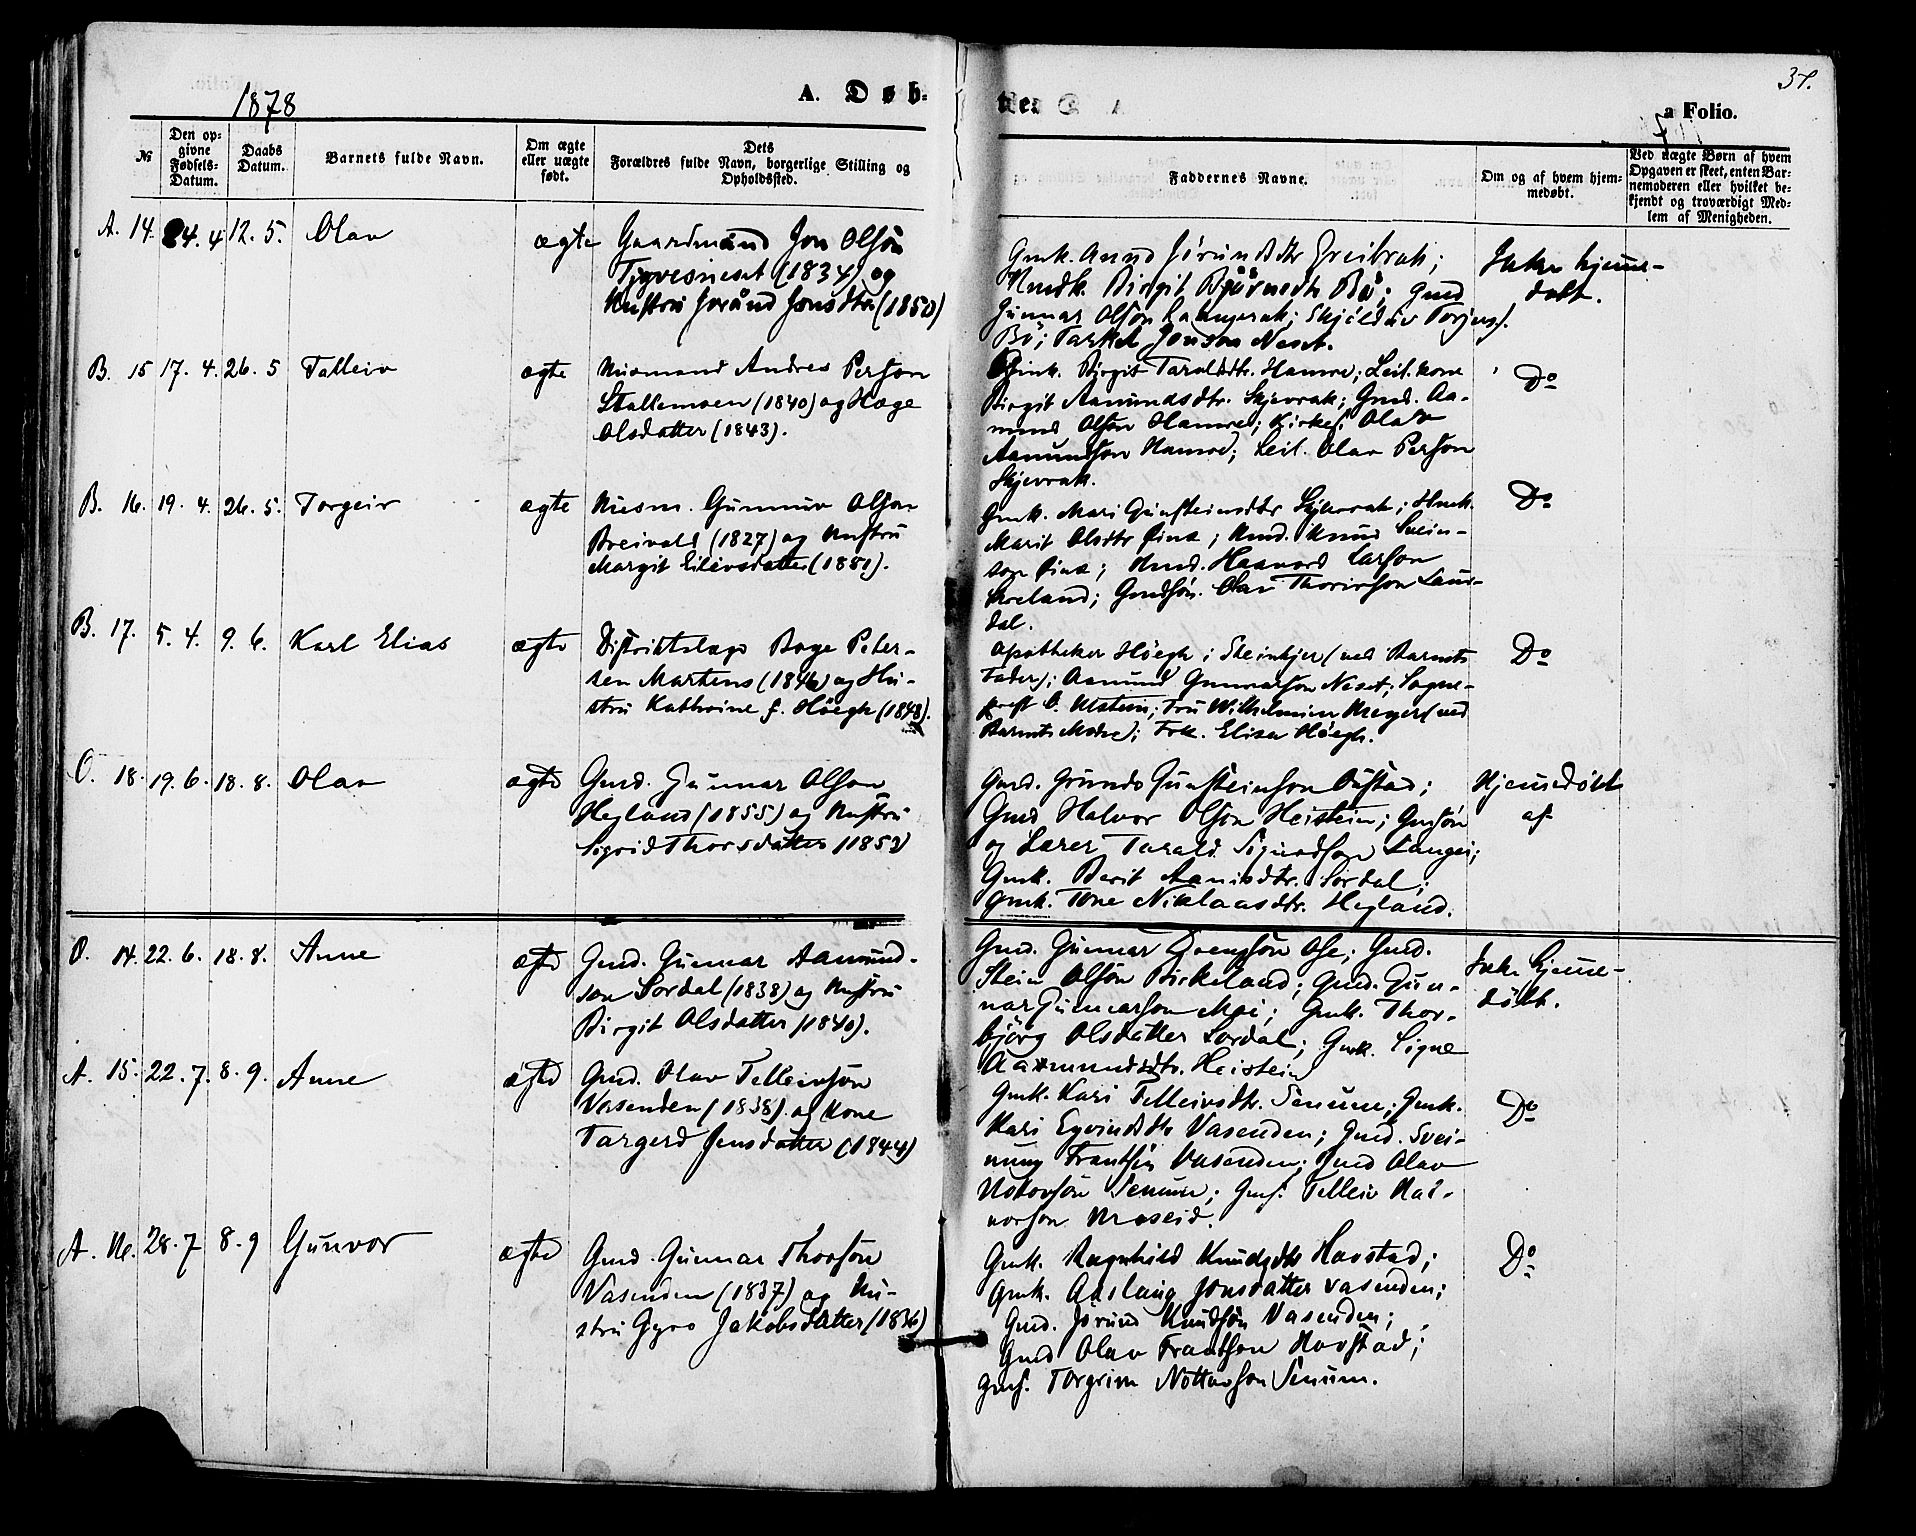 1878
A. Døb-
te.
37.
a Folio.
№
Den op-
givne
Fødsels-
Datum.
Daabs
Datum.
Barnets fulde Navn.
Om ægte
eller uægte
født.
Dets
Forældres fulde Navn, borgerlige Stilling og
Opholdssted.
Faddernes Navne.
Om og af hvem hjem-
medøbt.
Ved uægte Børn af hvem
Opgaven er skeet, enten Bar-
nemoderen eller hvilket be-
kjendt og troværdigt Med-
lem af Menigheden.
A. 14. 24. 4 12. 5. Olav ægte Gaardmand Jon Olsøn
(1834) og
Hustru Jorånd Jonsdtr (1850)
Gmk.
Birgit Bjørnsdtr Bø; Gmd
Gunnar Olsøn
Bø; Tarkel Jonson Neset.
Ikke hjemme-
døbt.
B. 15 17. 4. 26. 5 Talleiv ægte Husmand Andres Person
Stallemoen (1840) og Hæge
Olsdatter (1843).
Gmk. Birgit Taraldsdtr. Hamre; Leil. kone
Birgit Aamundsdtr. Skjevrak; Gmd. Aa-
mund Olsøn Hamre; Kirkes. Olav
Aamundson Hamre; Leil. Olav Person
Skjevrak.
Do
B. 16. 19. 4. 26. 5. Torgeir ægte Husm. Gunnuv Olson
Breivald (1827) og Hustru
Margit Eilivsdatter (1851).
Gmk. Mari Gunsteinsdtr Skjevrak; Hmk.
Marit Olsdtr
son
Gmdsøn. Olav Thorirson Laur-
dal.
Do
B. 17. 5. 4. 9. 6. Karl Elias ægte Distriktslæge Boye Peter-
sen Martens (1846) og Hu-
stru Kathrine f. Höegh (1848).
Apotheker Höegh i Steinkjer (ved Barnets
Fader); Aamund Gunnarson Neset; Sogne-
prest
Barnets Moder); Frk. Elisa Höegh.
Do
O. 18. 19. 6. 18. 8. Olav ægte Gmd. Gunnar Olson
Hegland (1855) og Hustru
Sigrid Thorsdatter (1852)
Gmd. Gunsteinson
Gmd Halvor Olson Heistein; Gmsøn
og Lærer Tarald Sigurdson Langei;
Gmk. Berit Aanisdtr. Sordal;
Gmk. Tone Niklaasdtr. Hegland.
Hjemmedøbt
af
O. 14. 22. 6. 18. 8. Anne ægte Gmd. Gunnar Aamund-
son Sordal (1838) og Hustru
Birgit Olsdatter (1840).
Gmd. Gunnar Drengson Ose; Gmd.
Stein Olsøn Birkeland; Gmd. Gun-
nar Gunnarson Moi; Gmk. Thor-
björg Olsdatter Sordal; Gmk. Signe
Aamundsdtr. Heistein
Ikke hjemme-
døbt.
A. 15. 22. 7. 8. 9. Anne ægte Gmd. Olav Telleivson
Vasenden (1838) og Kone
Targerd Jensdatter (1844)
Gmk. Kari Telleivsdtr. Senum; Gmk.
Kari Eyvindsdtr Vasenden; Gmd. Svei-
nung Frantsøn Vasenden; Gmd Olav
Senum; Gms. Telleiv Hal-
vorson
Do
A. 16. 28. 7 8. 9 Gunvor ægte Gmd. Gunnar Thorson
Vasenden (1837) og Hu-
stru Gyro Jakobsdatter (1836)
Gmk. Ragnhild Knudsdtr Havstad;
Gmk. Aaslaug Jonsdatter Vasenden;
Gmd. Jörund Knudsøn Vasenden;
Gmd Olav Frantson Havstad;
Gms. Torgrim Nottovson Senum.
Do